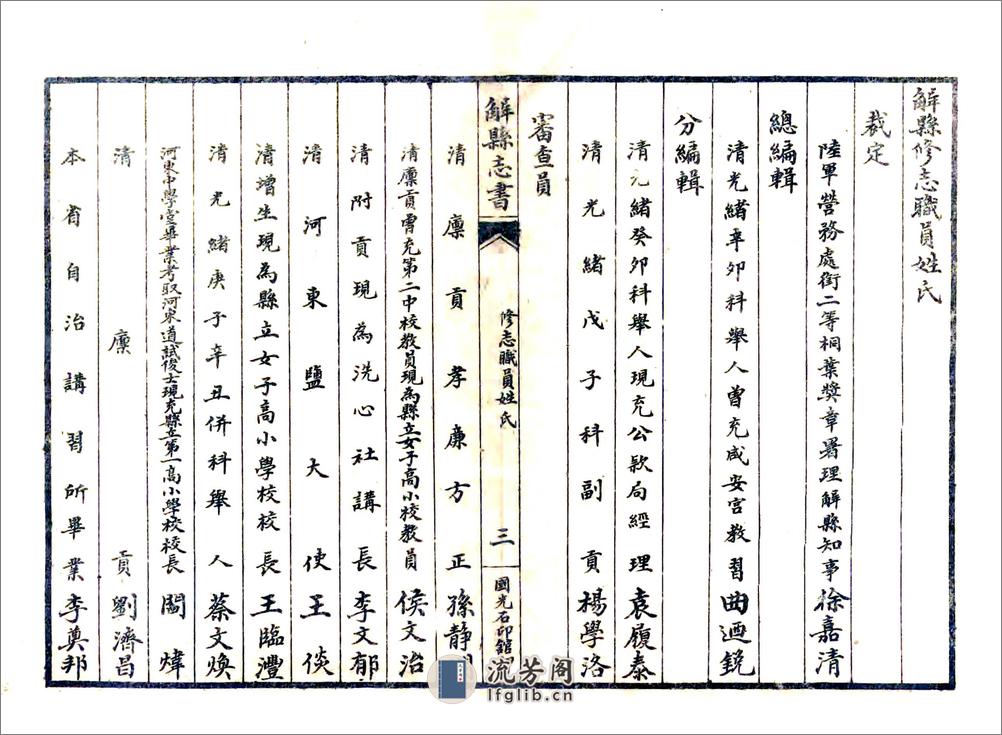 解縣修志職員姓氏
裁定
陸軍營務處銜二等桐葉獎章署理解縣知事徐嘉清
總編輯
清光緒辛卯科舉人曾充咸安宮教習曲迺銳
分編輯
清光緒癸卯科舉人現充公款局經理袁履泰
清光緒戊子科副貢楊學洛
審查員
解縣志書
修志職員姓氏
三
國光石印館
清廩貢孝廉方正孫靜
清廩貢曾充第二中校教員現為縣立女子高小校教員侯文治
清附貢現為洗心社講長李文郁
清河東鹽大使王倓
清增生現為縣立女子高小學校校長王臨灃
清光緒庚子辛丑併科舉人蔡文煥
河東中學堂畢業考取河東道試俊士現充縣立第一高小學校校長閻煒
清廩貢劉濟昌
本省自治講習所畢業李奠邦
流芳阁
lfglib.cn